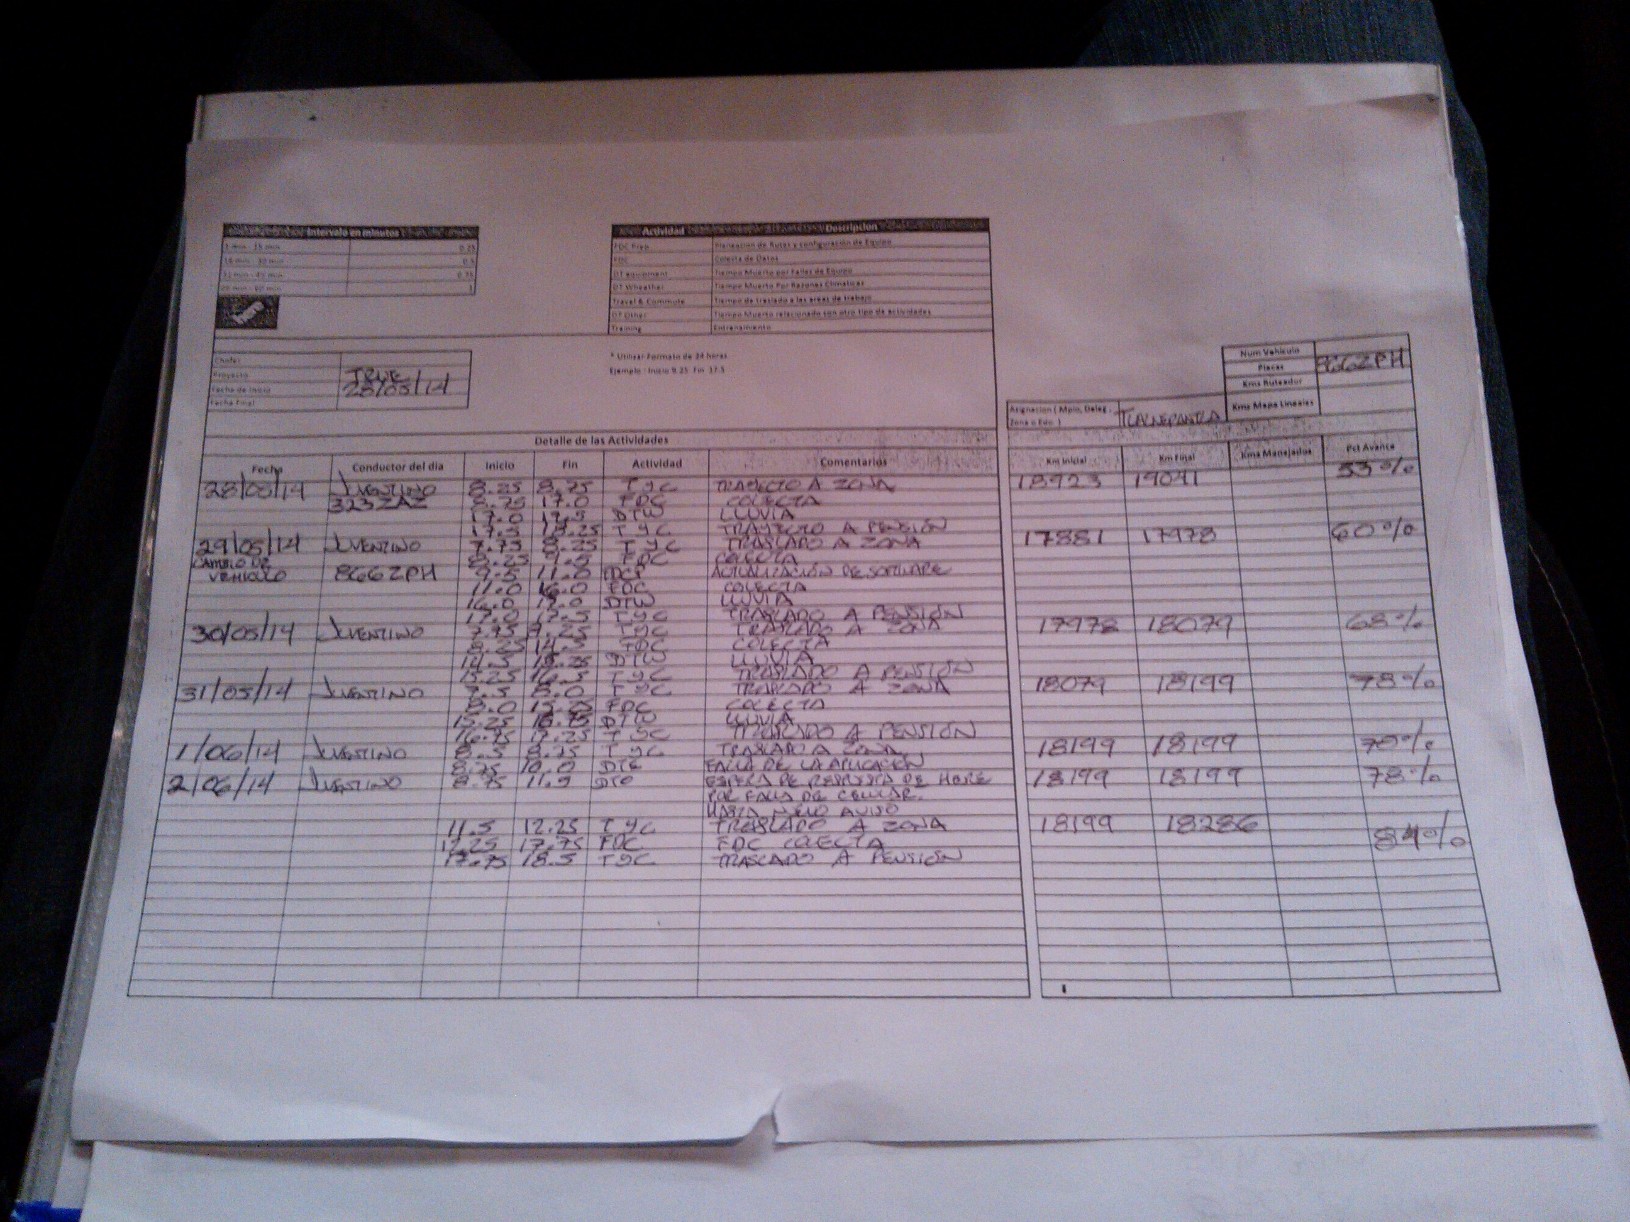 Intervalo en minutos
1 min - 15 min 0.25
16 min - 30 min 0.5
31 min - 45 min 0.75
1
here
Actividad Descripcion
FDC Prep. Planeacion de Rutas y configuración de Equipo
FDC Colecta de Datos
DT equipment Tiempo Muerto por Fallas de Equipo
DT Wheather Tiempo Muerto Por Razones Climaticas
Travel & Commute Tiempo de traslado a las areas de trabajo
DT Other Tiempo Muerto relacionado con otro tipo de actividades
Training Entrenamiento
* Utilizar Formato de 24 horas
Ejemplo : Inicio 9.25 Fin 17.5
Chofer
Proyecto TRUE
Fecha de Inicio 28/05/14
Fecha Final
Num Vehiculo
Placas 866ZPH
Kms Ruteador
Kms Mapa Lineales
Asignacion ( Mpio, Deleg , Zona o Edo. ) TLALNEPANTLA
Detalle de las Actividades
Fecha Conductor del dia Inicio Fin Actividad Comentarios Km Inicial Km Final Kms Manejados Pct Avance
28/05/14 JUVENTINO 8.25 8.75 TyC TRAYECTO A ZONA 18923 19041 53%
323ZAZ 8.75 17.0 FDC COLECTA
17.0 17.5 DTW LLUVIA
17.5 18.25 TyC TRAYECTO A PENSIÓN
29/05/14 JUVENTINO 7.75 8.25 TyC TRASLADO A ZONA 17881 17978 60%
CAMBIO DE 8.25 9.5 FDC COLECTA
VEHICULO 866ZPH 9.5 11.0 FDCP ACTUALIZACIÓN DE SOFTWARE
11.0 16.0 FDC COLECTA
16.0 17.0 DTW LLUVIA
17.0 17.5 TyC TRASLADO A PENSIÓN
30/05/14 JUVENTINO 7.75 8.25 TyC TRASLADO A ZONA 17978 18079 68%
8.25 14.5 FDC COLECTA
14.5 15.25 DTW LLUVIA
15.25 16.5 TyC TRASLADO A PENSIÓN
31/05/14 JUVENTINO 7.5 8.0 TyC TRASLADO A ZONA 18079 18199 78%
8.0 15.25 FDC COLECTA
15.25 16.75 DTW LLUVIA
16.75 17.25 TyC TRASLADO A PENSIÓN
1/06/14 JUVENTINO 8.5 8.75 TyC TRASLADO A ZONA 18199 18199 78%
8.75 10.0 DTE FALLA DE LA APLICACIÓN
2/06/14 JUVENTINO 8.75 11.5 DTO ESPERA DE RESPUESTA DE HERE 18199 18199 78%
POR FALLA DE CELULAR.
HASTA NUEVO AVISO
11.5 12.25 TyC TRASLADO A ZONA 18199 18286
12.25 17.75 FDC FDC COLECTA 84%
17.75 18.5 TyC TRASLADO A PENSIÓN